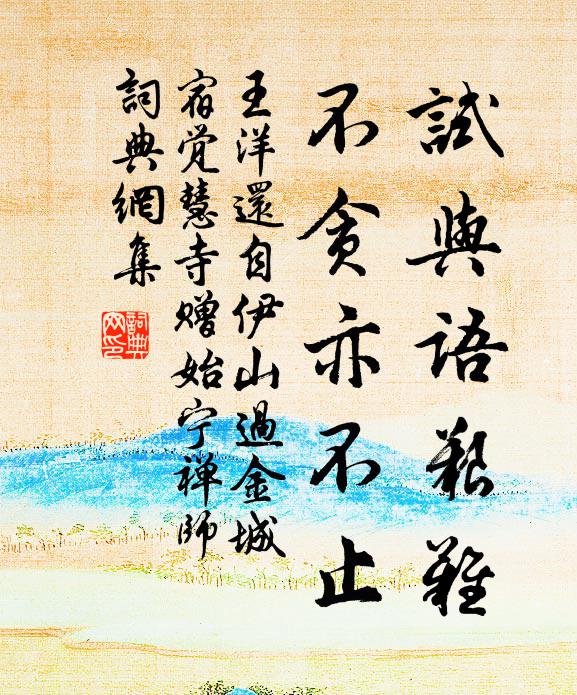 試與語艱難
不貪亦不止
王洋還自伊山過金城
宿觉慧寺赠始宁禅師
詞典網集
詞典
网印